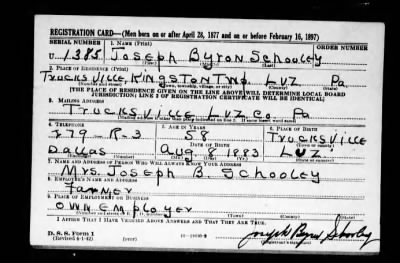 REGISTRATION CARD—(Men born on or after April 28, 1877 and on or before February 16, 1897)
SERIAL NUMBER 1. NAME (Print) ORDER NUMBER
U 1385 Joseph Byron Schooley
2. PLACE OF RESIDENCE (Print)
TRUCKSVILLE, KINGSTON TWP. LUZ Pa.
(Number and street) (Town, township, village, or city) (County) (State)
[THE PLACE OF RESIDENCE GIVEN ON THE LINE ABOVE WILL DETERMINE LOCAL BOARD
JURISDICTION; LINE 2 OF REGISTRATION CERTIFICATE WILL BE IDENTICAL]
3. MAILING ADDRESS
TRUCKSVILLE LUZ. Co. Pa
4. TELEPHONE 5. AGE IN YEARS 6. PLACE OF BIRTH
779-R-3 58 TRUCKSVILLE
DATE OF BIRTH (Town or county)
Dallas Aug 8 1883 LUZ.
(Exchange) (Number) (Mo.) (Day) (Yr.) (State or country)
7. NAME AND ADDRESS OF PERSON WHO WILL ALWAYS KNOW YOUR ADDRESS
Mrs. Joseph B. Schooley
8. EMPLOYER'S NAME AND ADDRESS
FARMER
9. PLACE OF EMPLOYMENT OR BUSINESS
OWN EMPLOYER
(Number and street or R. F. D. number) (Town) (County) (State)
I AFFIRM THAT I HAVE VERIFIED ABOVE ANSWERS AND THAT THEY ARE TRUE.
D. S. S. Form 1 Joseph Byron Schooley
(Revised 4-1-42) (over)